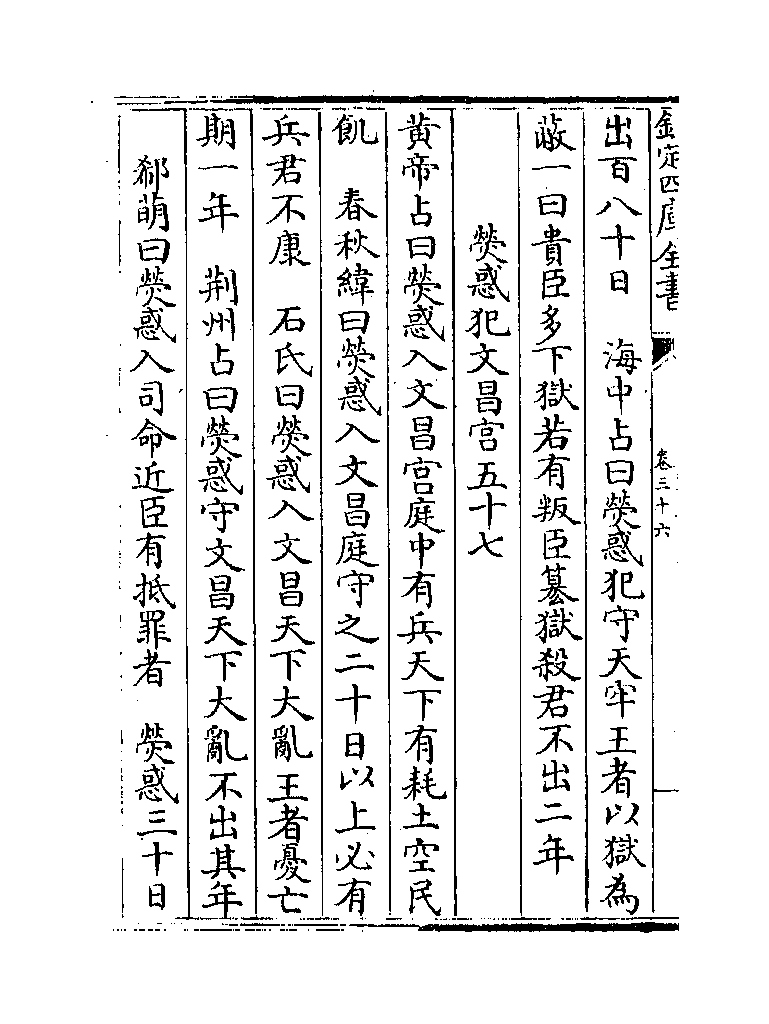 欽定四庫全書
卷三十六
出百八十日　海中占曰熒惑犯守天牢王者以獄為
蔽一曰貴臣多下獄若有叛臣簒獄殺君不出二年
熒惑犯文昌宫五十七
黄帝占曰熒惑入文昌宫庭中有兵天下有耗土空民
飢　春秋緯曰熒惑入文昌庭守之二十日以上必有
兵君不康　石氏曰熒惑入文昌天下大亂王者憂亡
期一年　荆州占曰熒惑守文昌天下大亂不出其年
郗萌曰熒惑入司命近臣有抵罪者　熒惑三十日